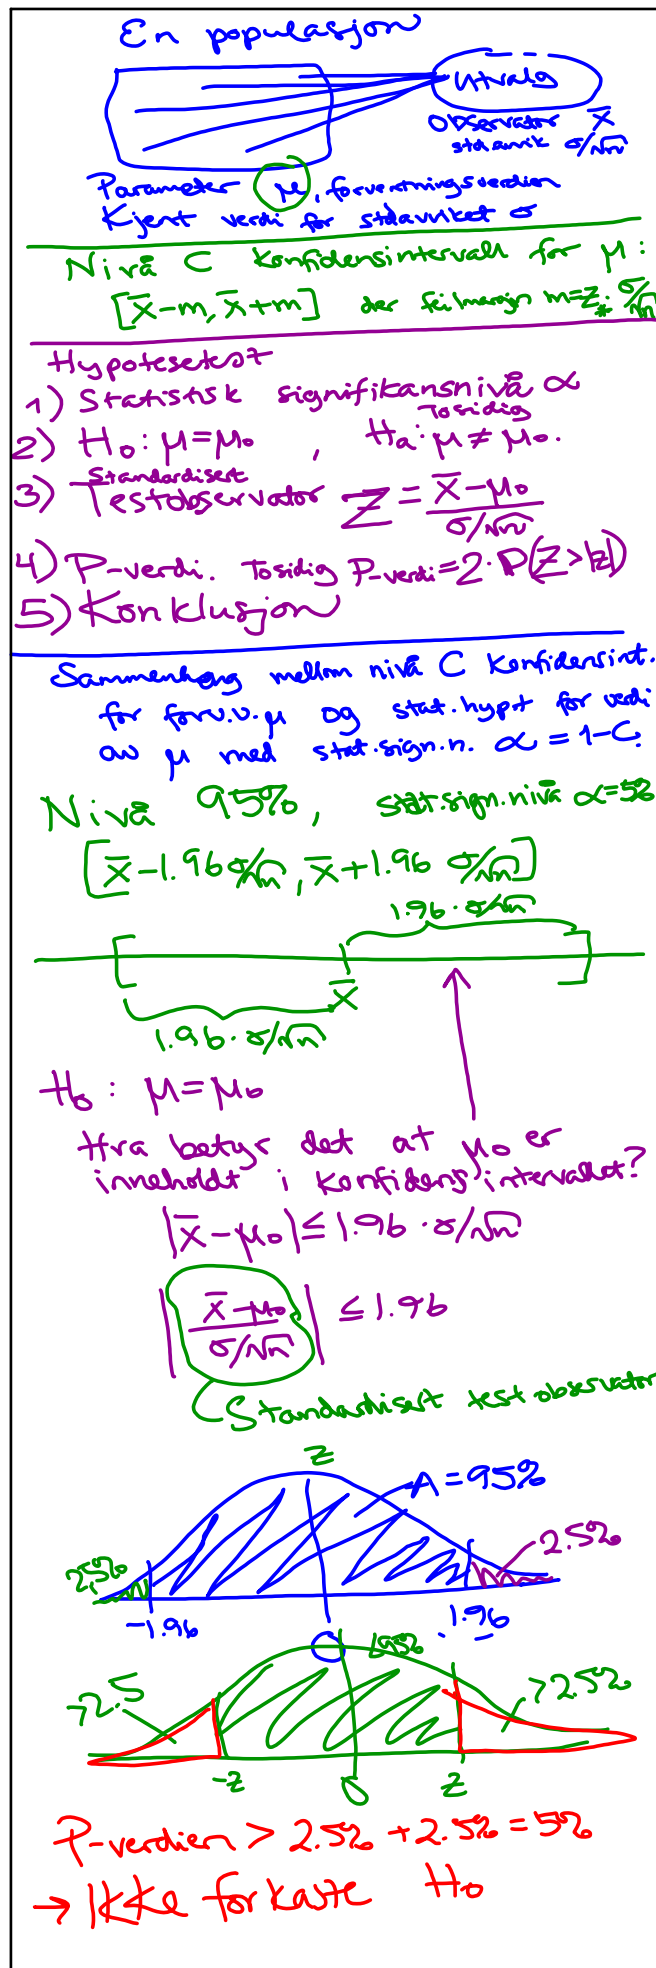 En populasjon
Utvalg
Observator x̄
std.avvik σ/√n
Parameter μ, forventningsverdien
Kjent verdi for stdavviket σ
Nivå C konfidensintervall for μ:
[x̄-m, x̄+m] der feilmargin m=z* · σ/√n
Hypotesetest
1) Statistisk signifikansnivå α
Tosidig
2) H₀: μ=μ₀ , Hₐ: μ ≠ μ₀.
Standardisert
3) Testobservator Z = (x̄-μ₀)/(σ/√n)
4) P-verdi. Tosidig P-verdi=2·P(Z>|z|)
5) Konklusjon
Sammenheng mellom nivå C konfidensint.
for forv.v. μ og stat.hypt for verdi
av μ med stat.sign.n. α = 1-C.
Nivå 95%, stat.sign.nivå α=5%
[x̄-1.96 σ/√n, x̄+1.96 σ/√n]
1.96 · σ/√n
x̄
1.96 · σ/√n
H₀: μ=μ₀
Hva betyr det at μ₀ er
inneholdt i konfidensintervallet?
|x̄-μ₀| ≤ 1.96 · σ/√n
|(x̄-μ₀)/(σ/√n)| ≤ 1.96
Standardisert testobservator
z
A=95%
2.5%
2.5%
-1.96
1.96
0
<95%
>2.5
>2.5%
-z
0
z
P-verdien > 2.5% + 2.5% = 5%
→ Ikke forkaste H₀